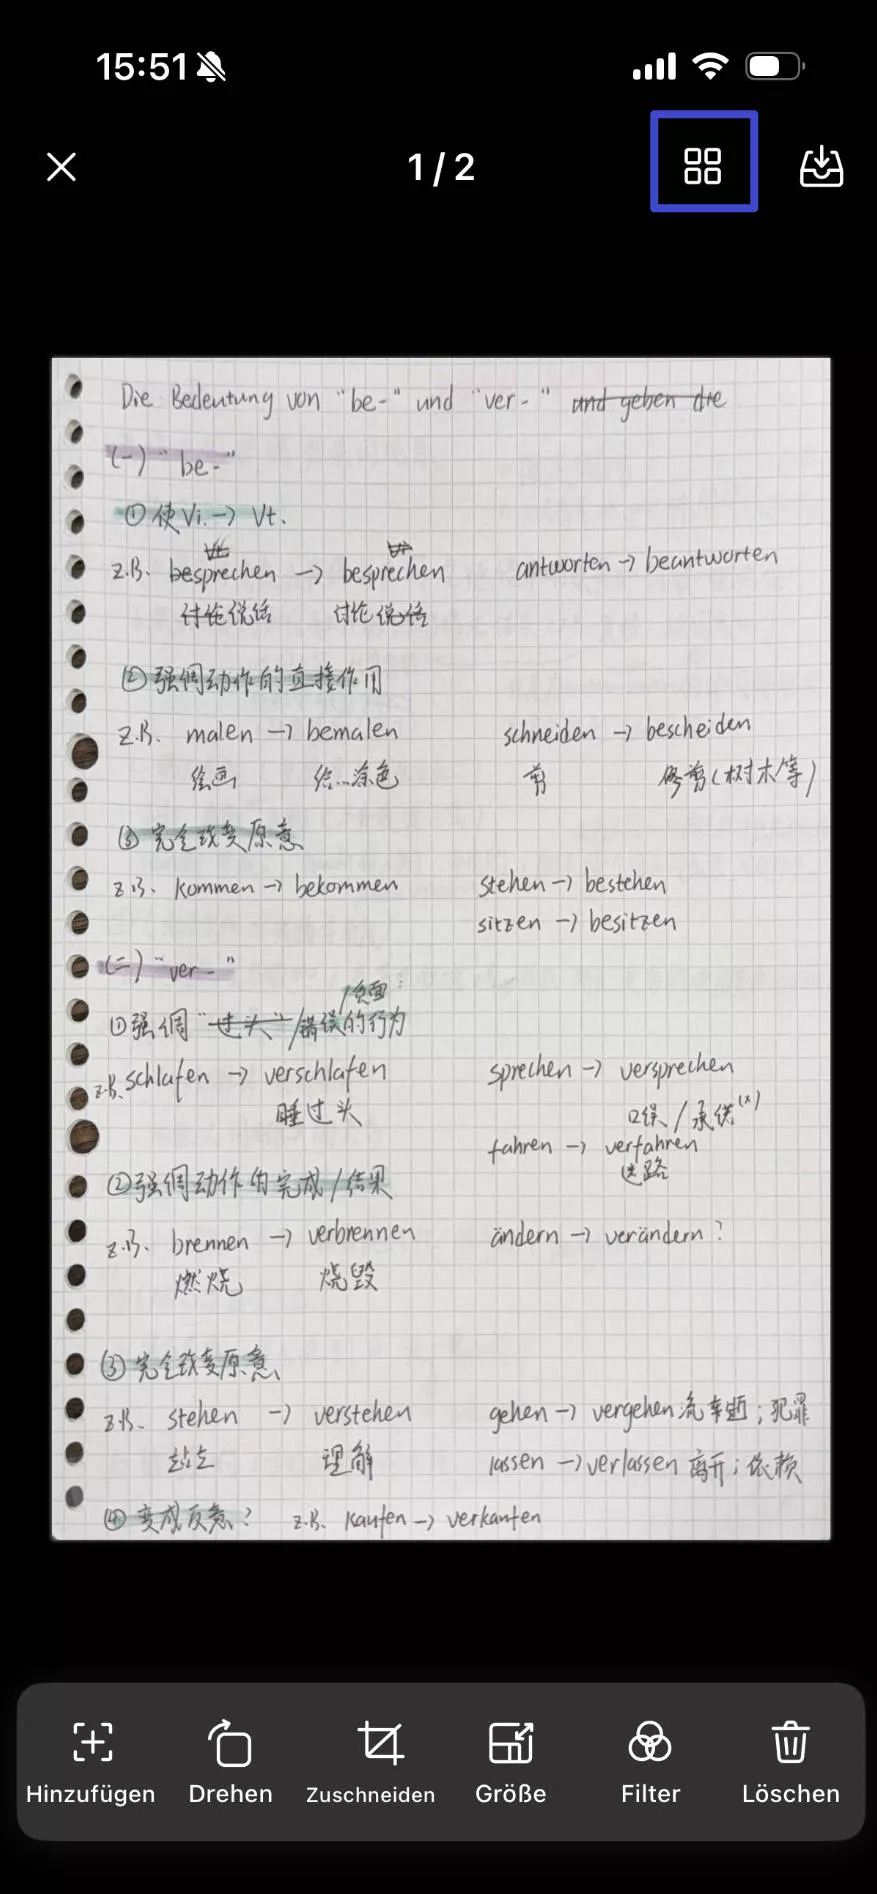 15:51
1/2
Die Bedeutung von "be-" und "ver-" und geben die
(一) "be-"
① 使Vi. → Vt.
Vt Vi
z.B. besprechen → besprechen antworten → beantworten
讨论说话 讨论说话
② 强调动作的直接作用
z.B. malen → bemalen schneiden → bescheiden
绘画 给...涂色 剪 修剪(树木等)
③ 完全改变原意
z.B. kommen → bekommen stehen → bestehen
sitzen → besitzen
(二) "ver-"
/负面
① 强调 "过头"/错误的行为
z.B. schlafen → verschlafen sprechen → versprechen
睡过头 口误/承诺(x)
fahren → verfahren
迷路
② 强调动作的完成/结果
z.B. brennen → verbrennen ändern → verändern?
燃烧 烧毁
③ 完全改变原意
z.B. stehen → verstehen gehen → vergehen 流逝;犯罪
站立 理解 lassen → verlassen 离开;依赖
④ 变成反意? z.B. kaufen → verkaufen
Hinzufügen Drehen Zuschneiden Größe Filter Löschen